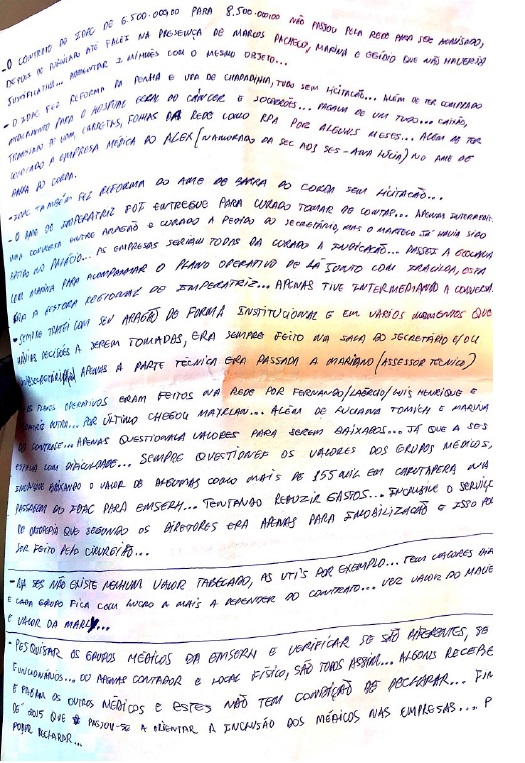 - O CONTRATO DO IDAC DE 6.500.000,00 PARA 8.500.000,00 NÃO PASSOU PELA REDE PARA SER ANALISADO,
DEPOIS DE ATÉ FALEI NA PRESENÇA DE MARCOS PACHECO, MARINA E EGÍDIO QUE NÃO HAVERIA
JUSTIFICATIVA... AUMENTAR 2 MILHÕES COM O MESMO OBJETO...
- O IDAC FEZ REFORMA DA PENHA E UPA DE CHAPADINHA, TUDO SEM LICITAÇÃO... ALÉM DE TER COMPRADO
MEDICAMENTO PARA O HOSPITAL GERAL DO CÂNCER E ... PAGAVA DE UM TUDO... CAIXÃO,
TRANSLADO DE CARRETAS, FOLHAS DA REDE COMO RPA POR ALGUNS MESES... ALÉM DE TER
A EMPRESA MÉDICA DO ALEX (NAMORADO DA SEC ADJ SES - ANA LÚCIA) NO AME DE
BARRA DO CORDA.
- IDAC TAMBÉM FEZ REFORMA DO AME DE BARRA DO CORDA SEM LICITAÇÃO...
- O AME DE IMPERATRIZ FOI ENTREGUE PARA CURADO TOMAR DE CONTA... APENAS INTERMEDIEI
UMA CONVERSA ENTRE ARAGÃO E CURADO A PEDIDO DO SECRETÁRIO, MAS O MARTELO JÁ HAVIA SIDO
BATIDO NO PALÁCIO... AS EMPRESAS SERIAM TODAS DA CURADO A INDICAÇÃO... PASSEI A
COM MARINA PARA ACOMPANHAR O PLANO OPERATIVO DE LÁ JUNTO COM IRACILDA, ESTA
ERA A GESTORA REGIONAL DE IMPERATRIZ... APENAS TIVE INTERMEDIANDO A CONVERSA.
- SEMPRE TRATEI COM SEU ARAGÃO DE FORMA INSTITUCIONAL E EM VÁRIOS MOMENTOS QUE
DECISÕES A SEREM TOMADAS, ERA SEMPRE FEITO NA SALA DO SECRETÁRIO E/OU
SUBSECRETÁRIA, APENAS A PARTE TÉCNICA ERA PASSADA A MARIANO (ASSESSOR TÉCNICO)
- OS PLANOS OPERATIVOS ERAM FEITOS NA REDE POR FERNANDO/LAÉRCIO/LUIS HENRIQUE E
OUTRO... POR ÚLTIMO CHEGOU MAYRLAN... ALÉM DE LUCIANA TOMICH E MARINA
DO CONTROLE... APENAS QUESTIONAVA VALORES PARA SEREM BAIXADOS... JÁ QUE A SES
ESTAVA COM DIFICULDADE... SEMPRE QUESTIONEI OS VALORES DOS GRUPOS MÉDICOS,
INCLUSIVE BAIXANDO O VALOR DE ALGUMAS COMO MAIS DE 155 MIL EM CARUTAPERA NA
PASSAGEM DO IDAC PARA EMSERH... TENTANDO REDUZIR GASTOS... INCLUSIVE O SERVIÇO
DE ORTOPEDIA QUE SEGUNDO OS DIRETORES ERA APENAS PARA IMOBILIZAÇÃO E ISSO POD
SER FEITO PELO CIRURGIÃO...
- NA SES NÃO EXISTE NENHUM VALOR TABELADO, AS UTI'S POR EXEMPLO... TEM VALORES DIF
E CADA GRUPO FICA COM LUCRO A MAIS A DEPENDER DO CONTRATO... VER VALOR DO
E VALOR DA MARLY...
- PESQUISAR OS GRUPOS MÉDICOS DA EMSERH E VERIFICAR SE SÃO DIFERENTES, SE
FUNCIONÁRIOS... OU APENAS CONTADOR E LOCAL FÍSICO, SÃO TODOS ASSIM... ALGUNS RECEBE
E PAGAM OS OUTROS MÉDICOS E ESTES NÃO TEM CONDIÇÃO DE DECLARAR... FIN
DE 2015 QUE PASSOU-SE A ORIENTAR A INCLUSÃO DOS MÉDICOS NAS EMPRESAS... P
PODER DECLARAR...